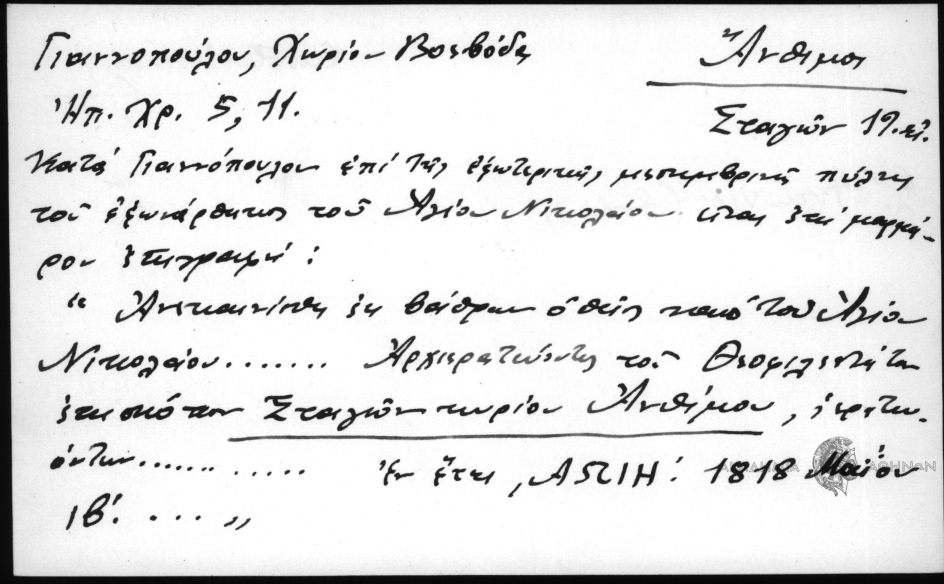 Γιαννοπούλου, Χωρίον Βοεβόδα
Ἄνθιμος
Ἠπ. Χρ. 5, 11.
Σταγῶν 19. αἰ.
Κατά Γιαννόπουλον ἐπί τῆς ἐξωτερικῆς μεσημβρινῆς πύλης
τοῦ ἐξωνάρθηκος τοῦ Ἁγίου Νικολάου εἶναι ἐπί μαρμά-
ρου ἐπιγραφή :
“ Ἀνεκαινίσθη ἐκ βάθρων ὁ θεῖος ναός τοῦ Ἁγίου
Νικολάου....... Ἀρχιερατεύοντος τοῦ Θεοφιλεστάτου
ἐπισκόπου Σταγῶν κυρίου Ἀνθίμου, ἱερατευ-
όντων............ Ἐν ἔτει ͵ΑΩΙΗ΄. 1818 Μαΐου
ιβ΄. ... „
ΑΘΗΝΩΝ